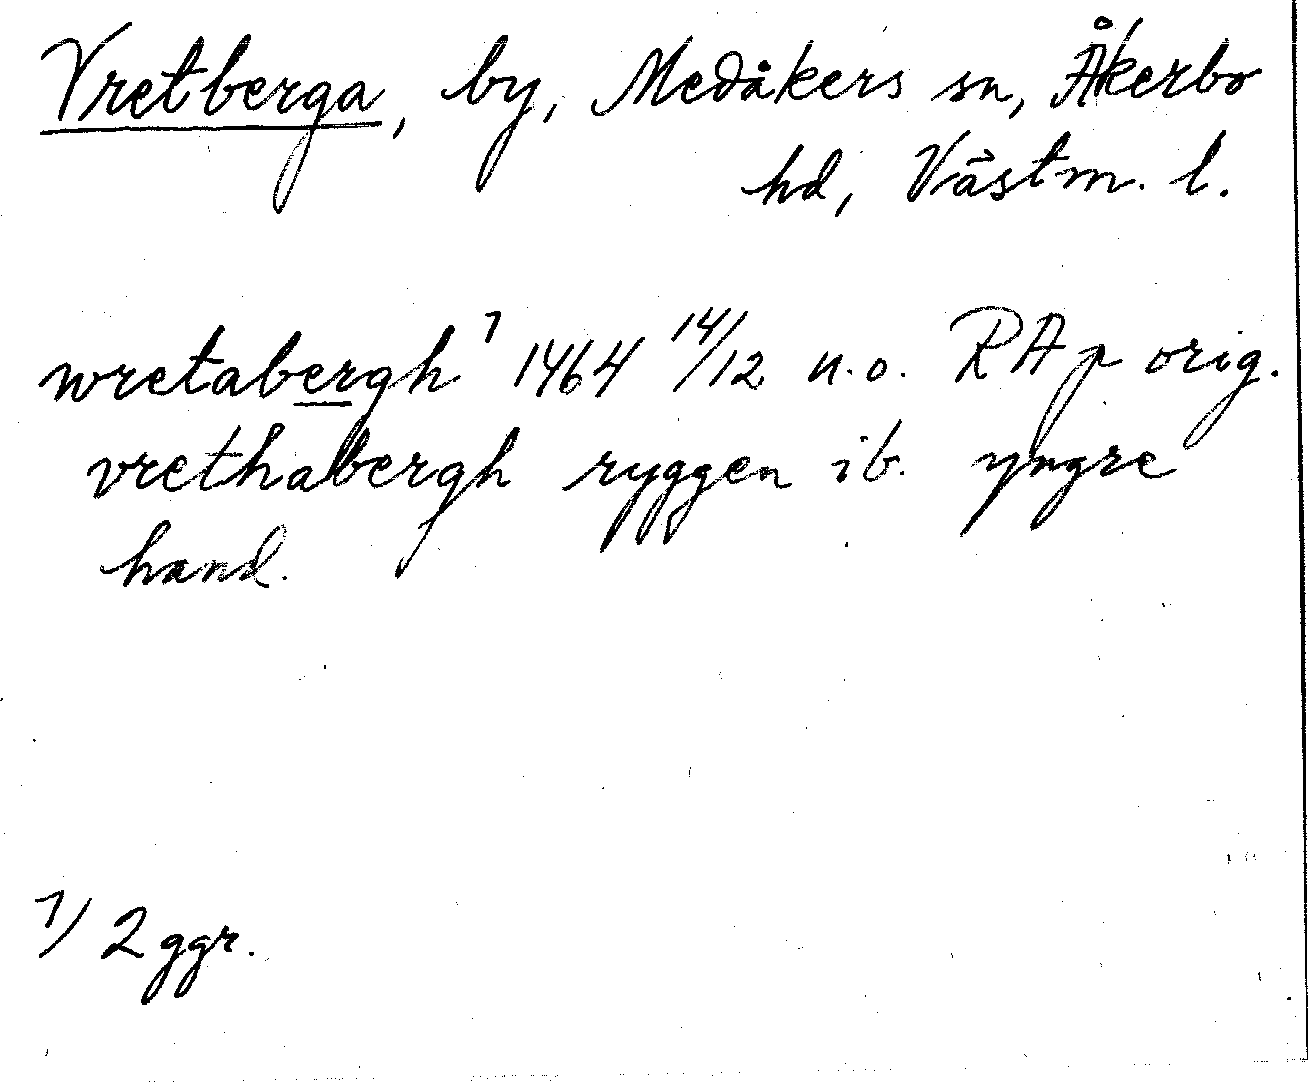 Vretberga, by, Medåkers sn, Åkerbo
hd, Västm. l.
wretabergh¹ 1464 14/12 u.o. RAp orig.
vrethabergh ryggen ib. yngre
hand.
1/ 2 ggr.